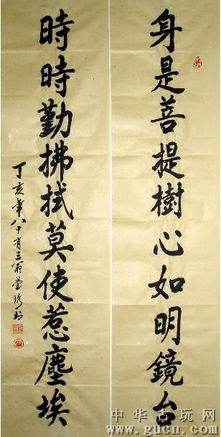 身是菩提樹心如明鏡台
時時勤拂拭莫使惹塵埃
丁亥年八十肖三翁
中华古玩网
www.gucn.com